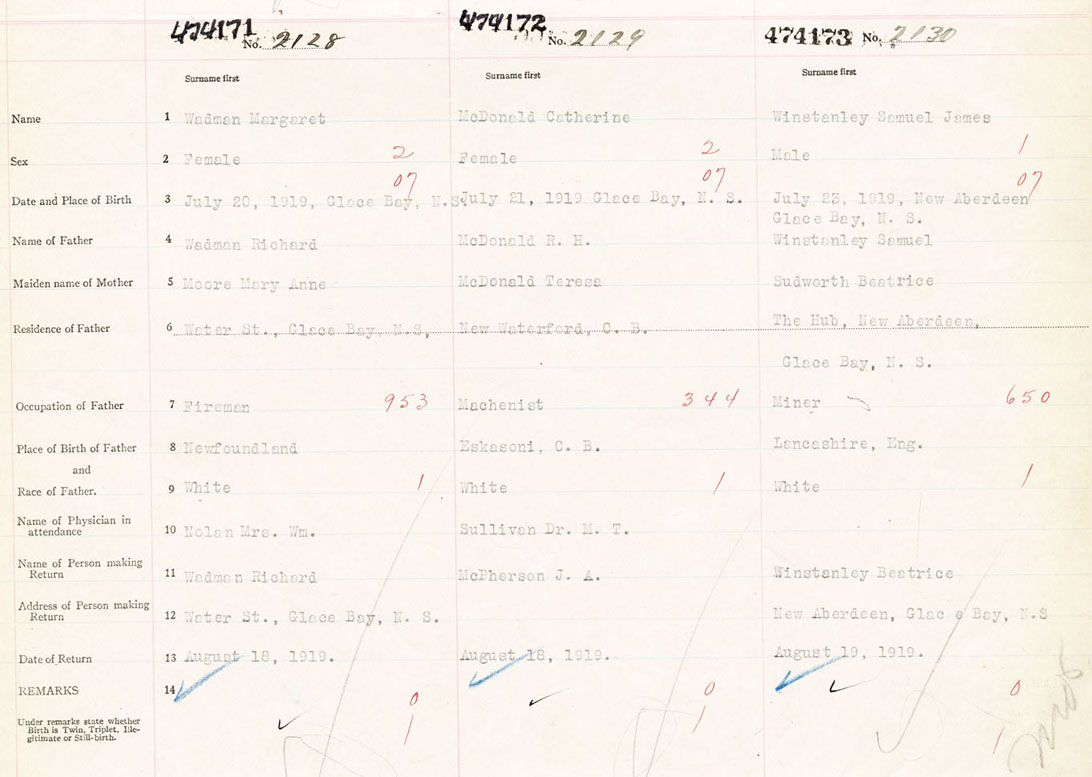 474171 No. 2128 474172 No. 2129 474173 No. 2130
Surname first Surname first Surname first
Name 1 Wadman Margaret McDonald Catherine Winstanley Samuel James
Sex 2 Female 2 Female 2 Male 1
07 07 07
Date and Place of Birth 3 July 20, 1919, Glace Bay, N.S. July 21, 1919 Glace Bay, N. S. July 23, 1919, New Aberdeen
Glace Bay, N. S.
Name of Father 4 Wadman Richard McDonald R. H. Winstanley Samuel
Maiden name of Mother 5 Moore Mary Anne McDonald Teresa Sudworth Beatrice
Residence of Father 6 Water St., Glace Bay, N.S, New Waterford, C. B. The Hub, New Aberdeen,
Glace Bay, N. S.
Occupation of Father 7 Fireman 953 Machenist 344 Miner 650
Place of Birth of Father 8 Newfoundland Eskasoni, C. B. Lancashire, Eng.
and
Race of Father. 9 White 1 White 1 White 1
Name of Physician in
attendance 10 Nolan Mrs. Wm. Sullivan Dr. M. T.
Name of Person making
Return 11 Wadman Richard McPherson J. A. Winstanley Beatrice
Address of Person making
Return 12 Water St., Glace Bay, N. S. New Aberdeen, Glac e Bay, N.S
Date of Return 13 August 18, 1919. August 18, 1919. August 19, 1919.
REMARKS 14 0 0 0
Under remarks state whether
Birth is Twin, Triplet, Ille-
gitimate or Still-birth. 1 1 1